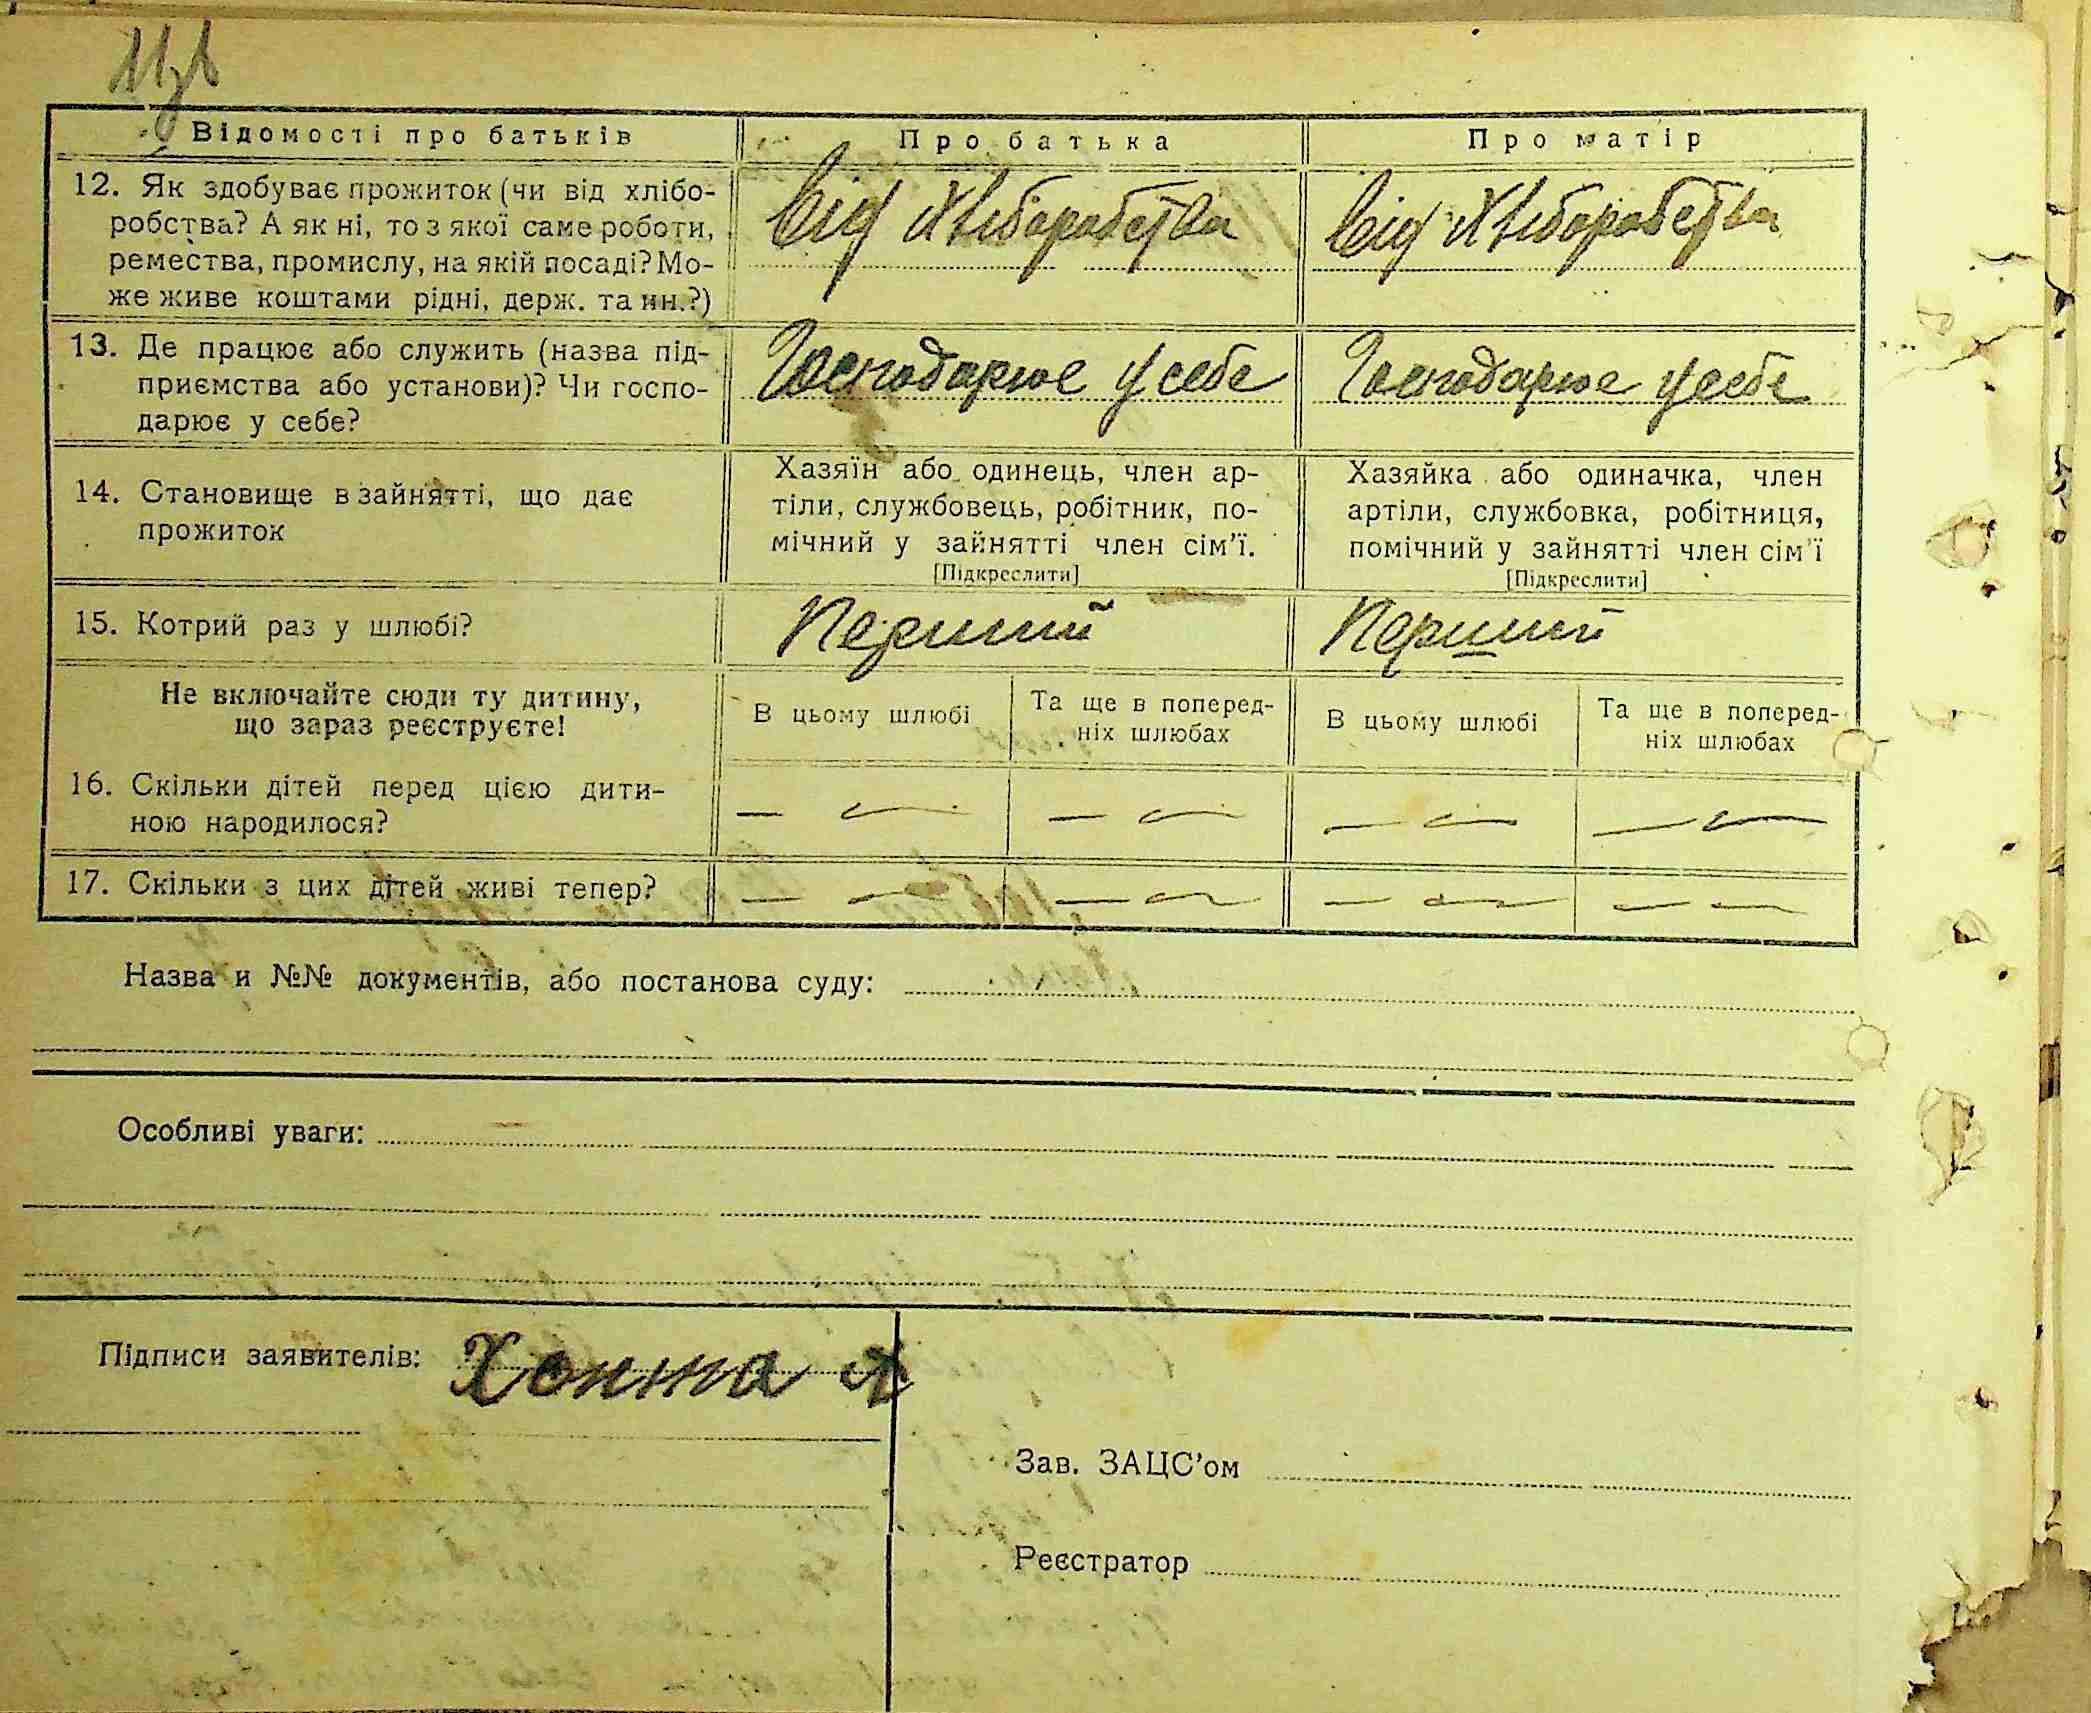 Відомості про батьків
Про батька
Про матір
12. Як здобуває прожиток (чи від хлібо-
робства? А як ні, то з якої саме роботи,
ремества, промислу, на якій посаді? Мо-
же живе коштами рідні, держ. та ин.?)
Від хліборобства
Від хліборобства
13. Де працює або служить (назва під-
приємства або установи)? Чи госпо-
дарює у себе?
Господарює у себе
Господарює у себе
14. Становище в зайнятті, що дає
прожиток
Хазяїн або одинець, член ар-
тіли, службовець, робітник, по-
мічний у зайнятті член сім'ї.
[Підкреслити]
Хазяйка або одиначка, член
артіли, службовка, робітниця,
помічний у зайнятті член сім'ї
[Підкреслити]
15. Котрий раз у шлюбі?
Перший
Перший
Не включайте сюди ту дитину,
що зараз реєструєте!
В цьому шлюбі
Та ще в поперед-
ніх шлюбах
В цьому шлюбі
Та ще в поперед-
ніх шлюбах
16. Скільки дітей перед цією дити-
ною народилося?
— — — — — — — —
17. Скільки з цих дітей живі тепер?
— — — — — — — —
Назва и №№ документів, або постанова суду:
Особливі уваги: —
Підписи заявителів:
Зав. ЗАЦС'ом
Реєстратор